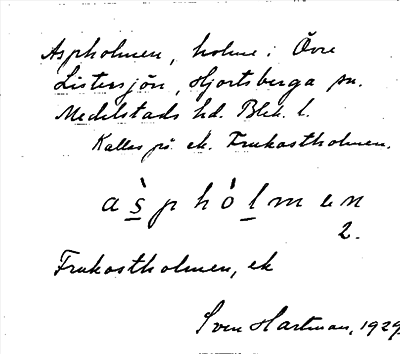 Aspholmen, holme i Övre
Listersjön, Hjortsberga sn.
Medelstads hd. Blek. l.
Kallas på ek. Frukostholmen.
a s̀ p h ò l m e n
2.
Frukostholmen, ek
Sven Hartman, 1929